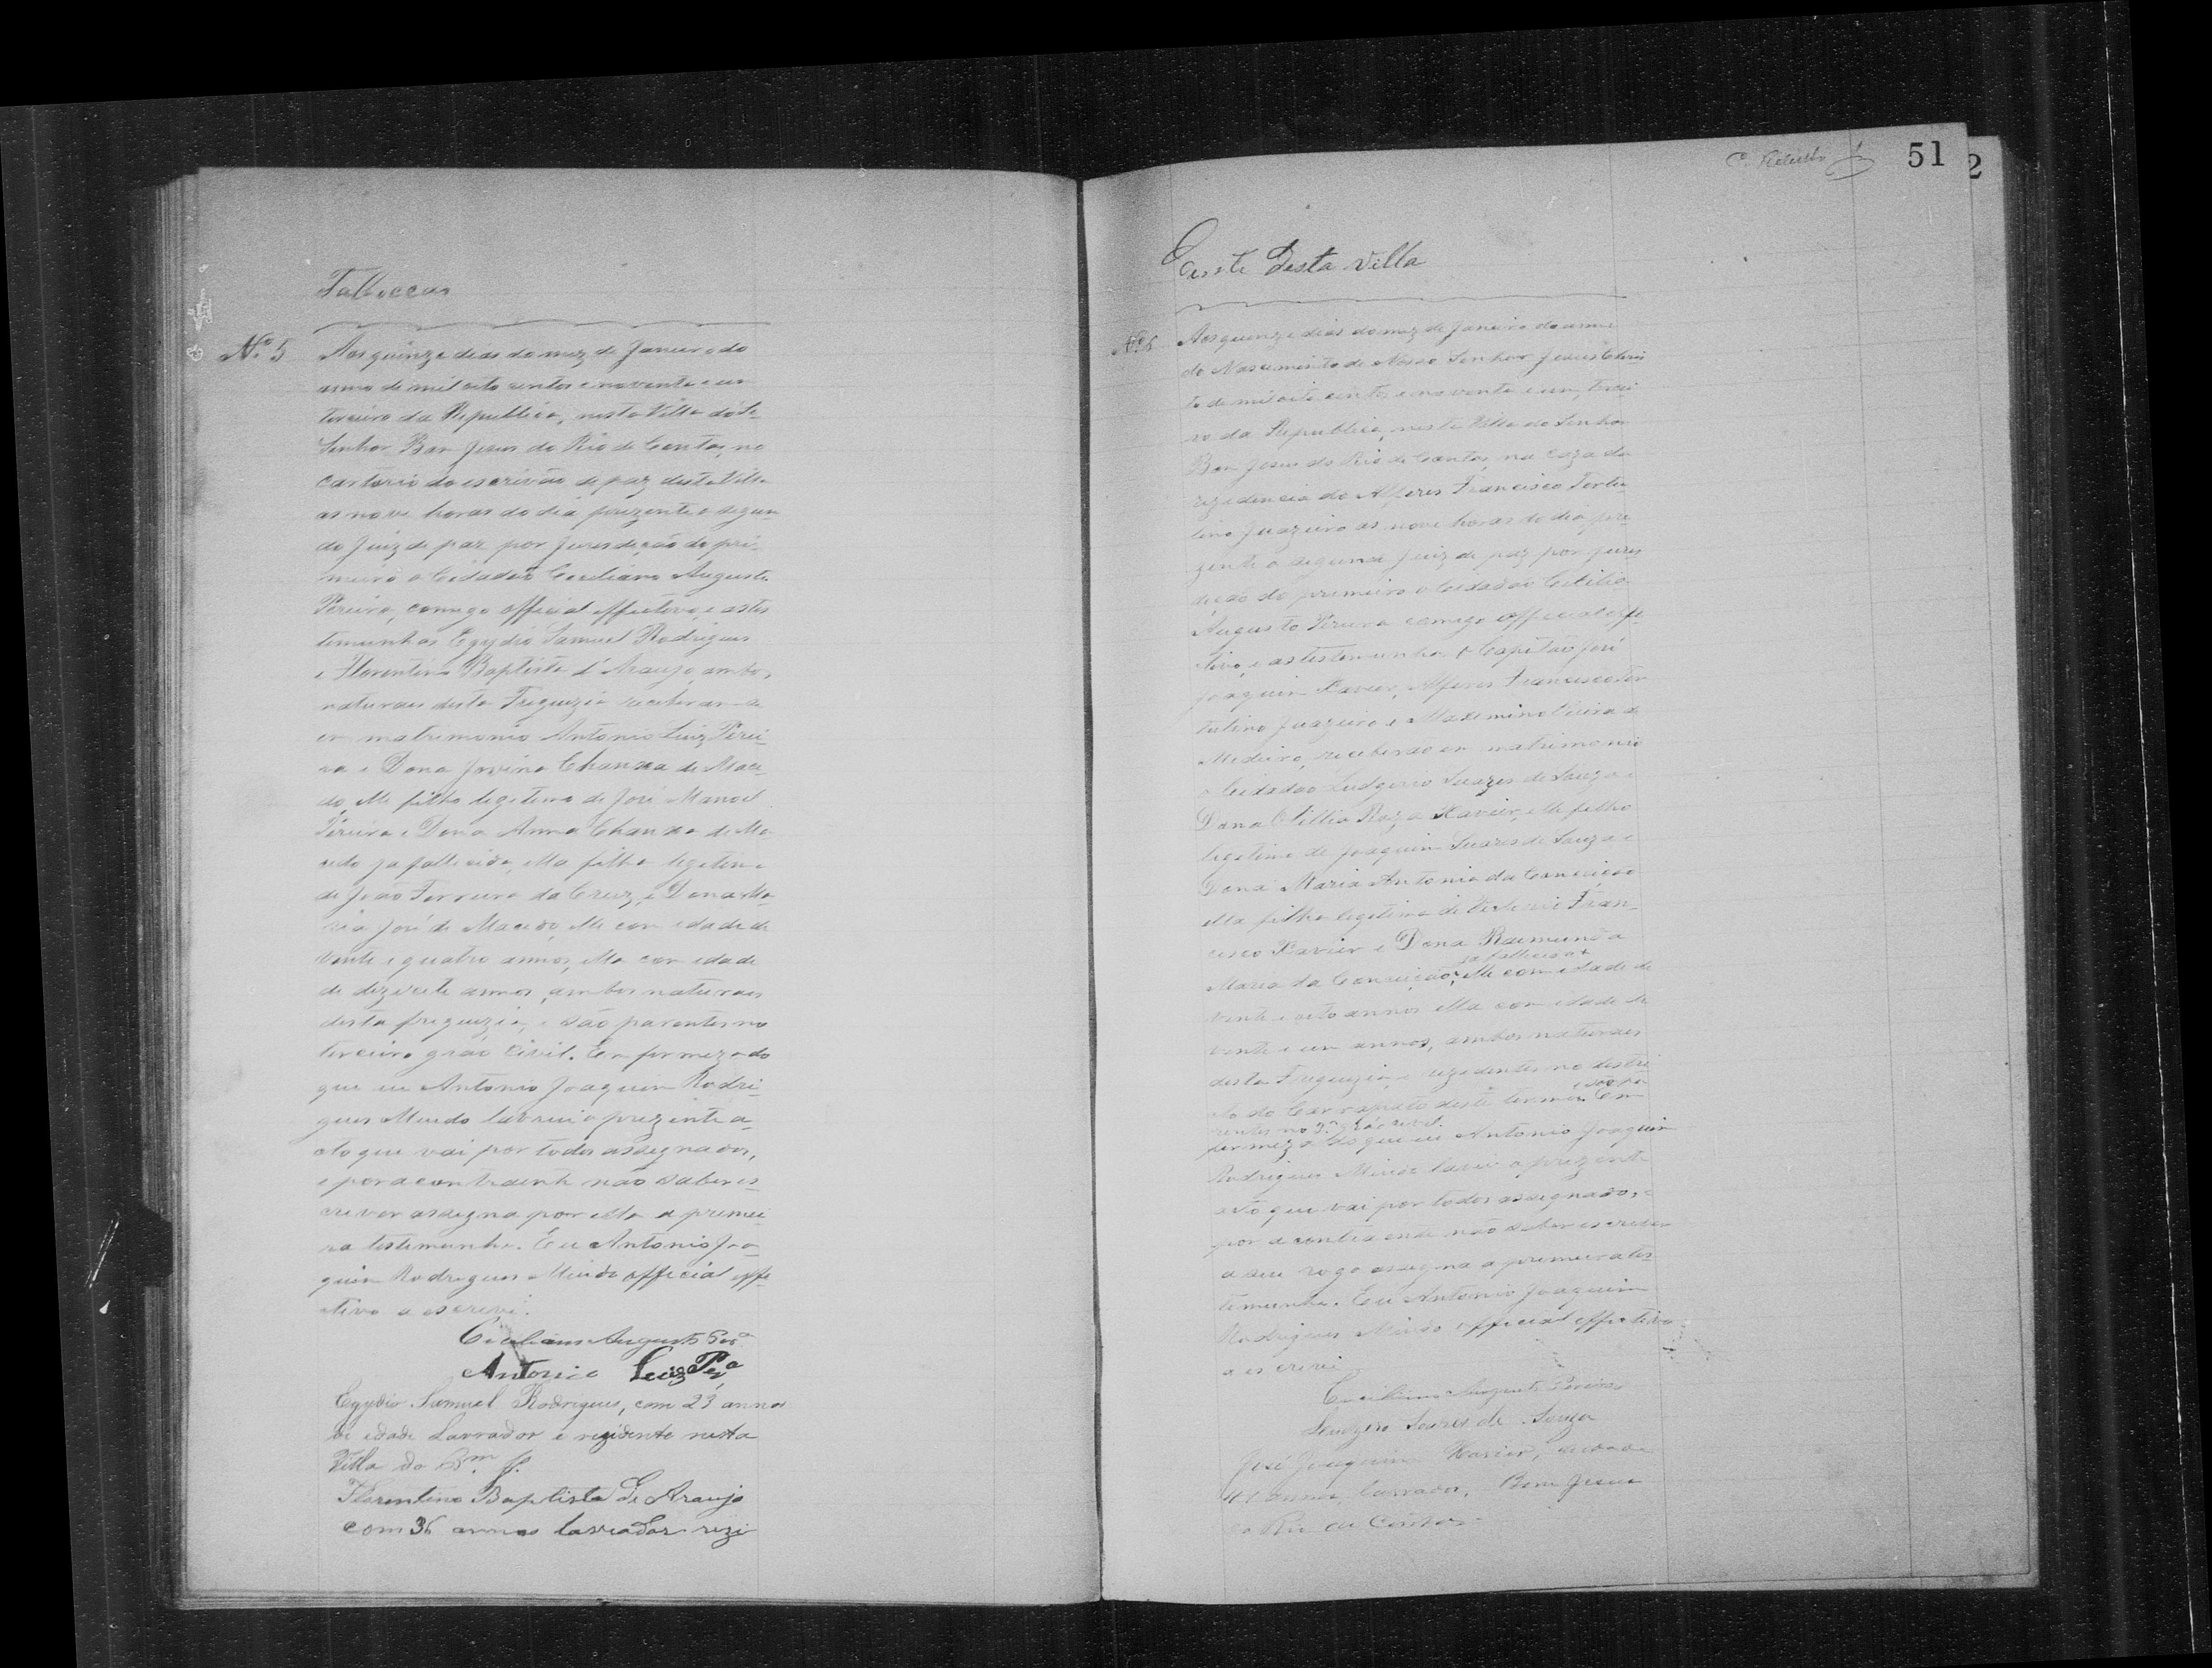 Taboccas
Nº 5 Aos quinze dias do mez de Janeiro do
anno de mil oito centos e noventa e um
terceiro da Republica, nesta Villa do Se
Senhor Bom Jesus do Rio de Contas, no
cartorio do escrivão de paz desta Villa
as nove horas do dia prezente o segun
do Juiz de paz por Jurisdeção do pri-
meiro o Cidadão Ceciliano Augusto
Pereira, comigo official effectivo, e as tes
temunhas Egydio Samuel Rodrigues
e Florentino Baptista d'Araujo, ambos
naturaes desta Freguezia receberam-se
em matrimonio Antonio Luiz Perei-
ra e Dona Jovina Chanxa de Mace-
do, elle filho legitimo de José Manoel
Pereira e Dona Anna Chanxa de Ma
cedo ja fallecida, ella filha legitima
de João Ferreira da Cruz, e Dona Ma-
ria José de Macedo, elle com edade de
vinte e quatro annos, ella com edade
de dezesete annos, ambos naturaes
desta freguezia, e são parentes no
terceiro gráo Civil. Em firmeza do
que eu Antonio Joaquim Rodri-
gues Mendo lavrei o prezente a-
cto que vai por todos assignados,
e por a contraente não saber es-
crever assigna por ella a primei-
ra testemunha. Eu Antonio Joa-
quim Rodrigues Mendo official effe
ctivo o escrevi.
Ceciliano Augusto Per.ª
Antonio Luiz Per.ª
Egydio Samuel Rodrigues, com 23 annos
de edade Lavrador e rezidente nesta
Villa do Bm. J.
Florentino Baptista de Araujo
com 36 annos lavrador rezi
51
2
dente desta Villa
Nº 6 Aos quinze dias do mez de Janeiro do anno
do Nascimento de Nosso Senhor Jesus Chris
to de mil oito centos e noventa e um, tercei
ro da Republica, nesta Villa do Senhor
Bom Jesus do Rio de Contas, na caza da
rezidencia do Alferes Francisco Tertu
lino Juazeiro as nove horas do dia, pre
zente o segundo Juiz de paz por Juris
deção do primeiro o Cidadão Cecilia
Augusto Pereira comigo official effe
ctivo, e as testemunhas o Capitão José
Joaquim Xavier, Alferes Francisco Ter
tulino Juazeiro e Maximino Vieira de
Medeiro, receberão em matrimonio
o Cidadão Ludgerio Suares de Souza e
Dona Ottilia Roza Xavier, elle filho
legitimo de Joaquim Suares de Souza e
Dona Maria Antonia da Conceição
ella filha legitima de Francisco Xavier e Dona Raimunda
ja fallecida
Maria da Conceição, elle com edade de
vinte e oito annos ella com edade de
vinte e um annos, ambos naturaes
desta Freguezia, e rezidentes no destri
cto do Carrapato deste termo e são pa Em
rentes no 3º gráo civil.
firmeza do que eu Antonio Joaquim
Rodrigues Mendo lavrei o prezente
acto que vai por todos assignados, e
por a contraente não saber escrever
a seu rogo assigna a primeira tes
temunha. Eu Antonio Joaquim
Rodrigues Mendo official effectivo
o escrevi
Ceciliano Augusto Pereira
Ludgero Soares de Souza
José Joaquim Xavier, de edade
annos, Lavrador, Bom Jesus
do Rio de Contas